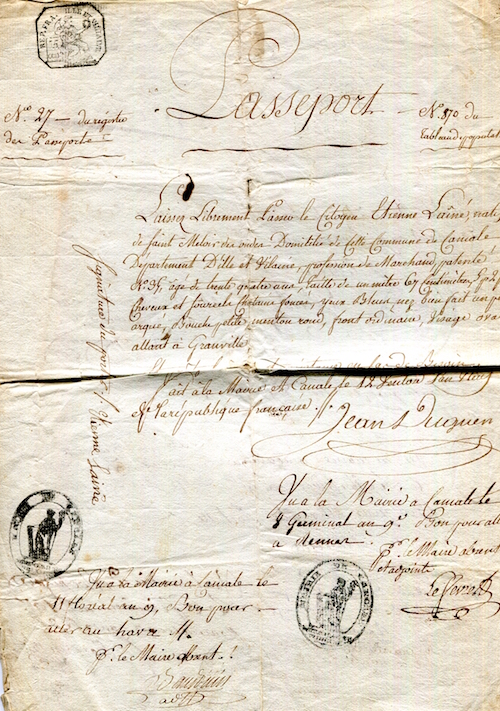 REP. FRA.
Passeport
Nº 27 — du registre
des Passeports
Nº 870 du
Tableau de populat
Laissez Librement Passer le Citoyen Etienne Lainé, natif
de Saint Meloir des ondes Domicilié de cette Commune de Cancale
Département D'Ille et Vilaine, profession de Marchand, patenté
Nº 35, age de trente quatre ans, taille de un mètre 67 Centimètres,
Cheveux et sourcils chatains foncés, yeux Bleus, nez bien fait un p
arqué, Bouche petite, menton rond, front ordinaire, Visage ova
allant à Granville
ait à la Mairie de Cancale, le 12
de la republique française
Jean
Signature du porteur / Etienne Lainé
Vu à la Mairie à Cancale le
8 Germinal an 9. Bon pour all
à Rennes
pr. le Maire absent
l'adjointe
Vu à la Mairie à Cancale le
11 floreal an 9, Bon pour
aller au havre
pr. le Maire absent
adjt